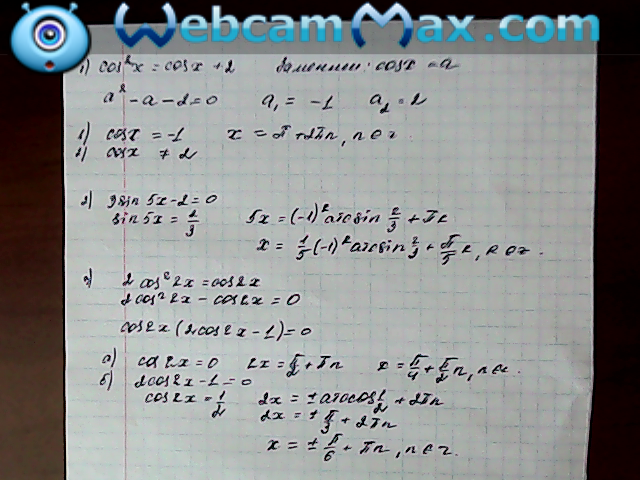 WebcamMax.com
1) cos²x = cosx + 2 Заменим: cosx = a
a² - a - 2 = 0 a₁ = -1 a₂ = 2
1) cosx = -1 x = π + 2πn, n ∈ z.
2) cosx ≠ 2
2) 3sin 5x - 2 = 0
sin 5x = 2/3 5x = (-1)ᵏ arcsin 2/3 + πk
x = 1/5 (-1)ᵏ arcsin 2/3 + π/5 k, k ∈ z.
3) 2 cos² 2x = cos2x
2cos² 2x - cos2x = 0
cos2x (2cos2x - 1) = 0
а) cos 2x = 0 2x = π/2 + πn x = π/4 + π/2 n, n ∈ z.
б) 2cos2x - 1 = 0
cos2x = 1/2 2x = ± arccos 1/2 + 2πn
2x = ± π/3 + 2πn
x = ± π/6 + πn, n ∈ z.